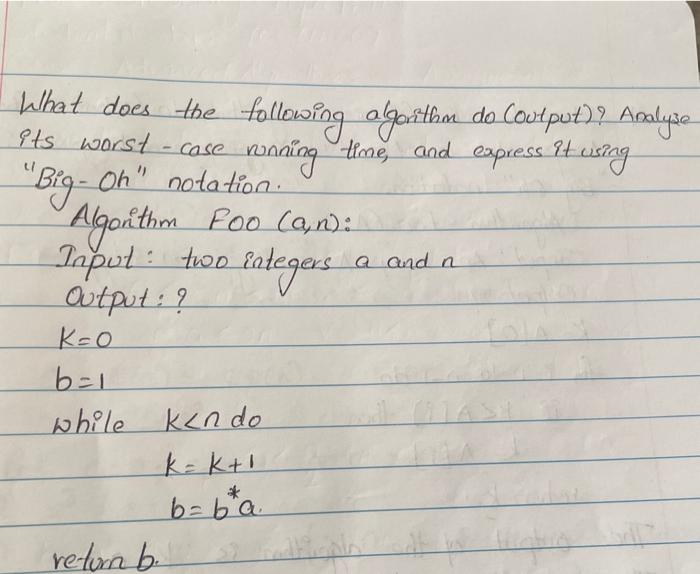 What does the following algorithm do (output)? Analyze
its worst-case running time, and express it using
"Big-Oh" notation.
Algorithm Foo (a,n):
Input: two integers a and n
Output: ?
k=0
b=1
while k<n do
k=k+1
b=b*a.
return b.